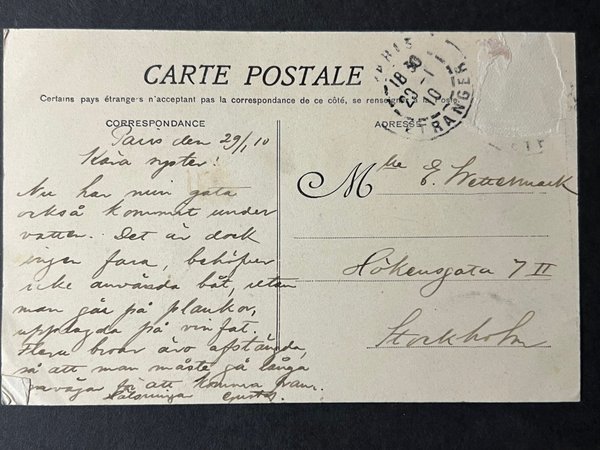 CARTE POSTALE
Certains pays étrangers n'acceptant pas la correspondance de ce côté, se renseigner à la Poste.
CORRESPONDANCE
ADRESSE
PARIS
18 30
29 - 1
10
ETRANGER
Paris den 29/1 10
Kära syster!
Nu har min gata
också kommit under
vatten. Det är dock
ingen fara, behöfver
icke använda båt, utan
man går på plankor,
upplagda på vinfat.
Flera broar äro afstängda,
så att man måste gå långa
omvägar för att komma fram.
Gustaf
Mlle E. Wettermark
Hökensgata 7 II
Stockholm